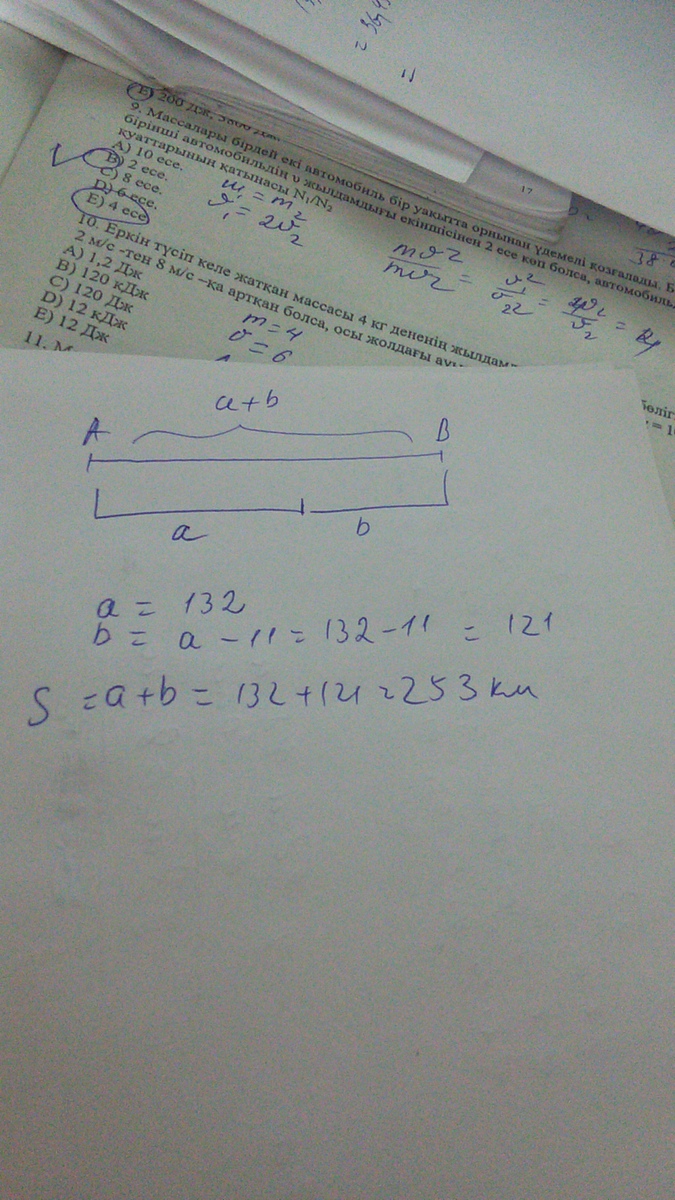 = 36,9
=
17
E) 200 Дж,
9. Массалары бірдей екі автомобиль бір уақытта орнынан үдемелі қозғалады. Б
бірінші автомобильдің υ жылдамдығы екіншісінен 2 есе көп болса, автомобиль
қуаттарының қатынасы N₁/N₂
A) 10 есе.
B) 2 есе.
C) 8 есе.
D) 6 есе.
E) 4 есе
38
10. Еркін түсіп келе жатқан массасы 4 кг дененің жылдам
2 м/с -тен 8 м/с –қа артқан болса, осы жолдағы
A) 1,2 Дж
B) 120 кДж
C) 120 Дж
D) 12 кДж
E) 12 Дж
m = 4
υ = 6
11. М
a+b
A B
a b
a = 132
b = a - 11 = 132 - 11 = 121
S = a+b = 132 + 121 = 253 км